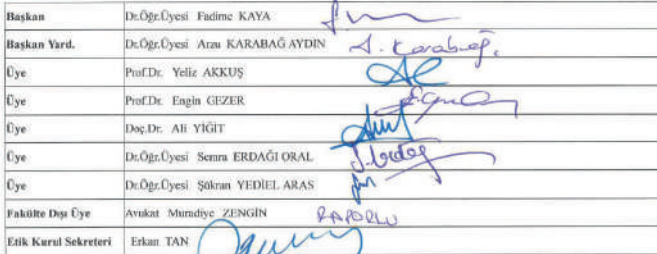 Başkan Dr.Öğr.Üyesi Fadime KAYA
Başkan Yard. Dr.Öğr.Üyesi Arzu KARABAĞ AYDIN A. Karabağ.
Üye Prof.Dr. Yeliz AKKUŞ
Üye Prof.Dr. Engin GEZER
Üye Doç.Dr. Ali YİĞİT
Üye Dr.Öğr.Üyesi Semra ERDAĞI ORAL
Üye Dr.Öğr.Üyesi Şükran YEDİEL ARAS
Fakülte Dışı Üye Avukat Muradiye ZENGİN RAPORLU
Etik Kurul Sekreteri Erkan TAN